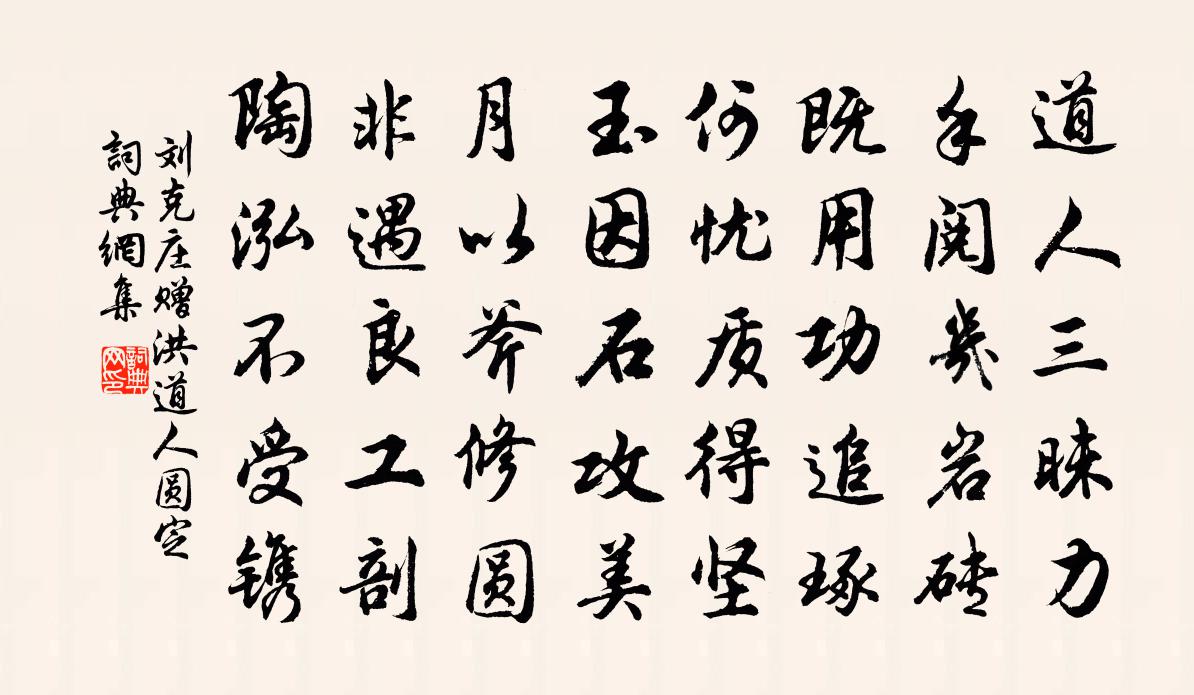 道人三昧力
手阅幾岩砖
既用功追琢
何忧质得坚
玉因石攻美
月以斧修圆
非遇良工剖
陶泓不受镌
刘克庄赠洪道人圆定
詞典網集
詞典网印